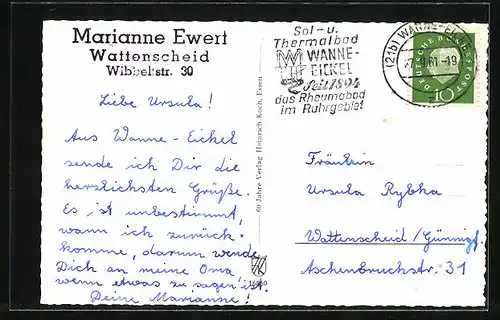 Marianne Ewert
Wattenscheid
Wibbelstr. 30
Liebe Ursula!
Aus Wanne-Eickel
sende ich Dir die
herzlichsten Grüße.
Es ist unbestimmt,
wann ich zurück-
komme, darum wende
Dich an meine Oma
wenn etwas zu sagen ist.
Deine Marianne!
60 Jahre Verlag Heinrich Koch, Essen
Sol- u.
Thermalbad
WANNE-
EICKEL
Seit 1894
das Rheumabad
im Ruhrgebiet
(21b) WANNE-EICKEL
61-19
DEUTSCHE BUNDESPOST
10
Fräulein
Ursula Rybka
Wattenscheid/Günnigf.
Aschenbruchstr. 31